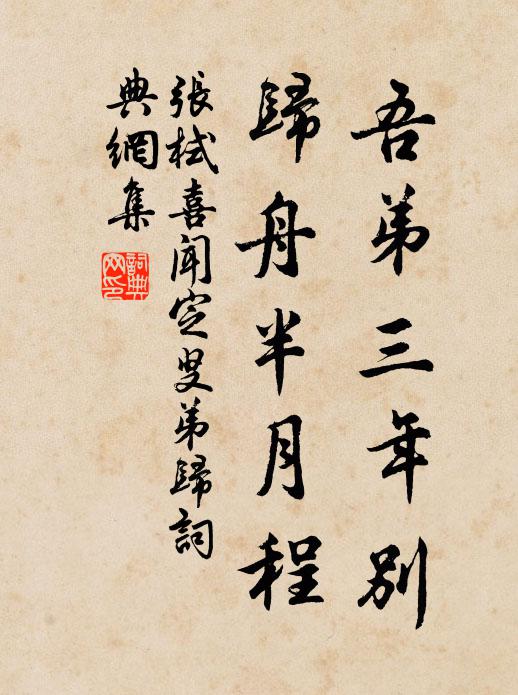 吾弟三年別
歸舟半月程
張栻喜聞定叟弟歸詞
典網集
詞典網印